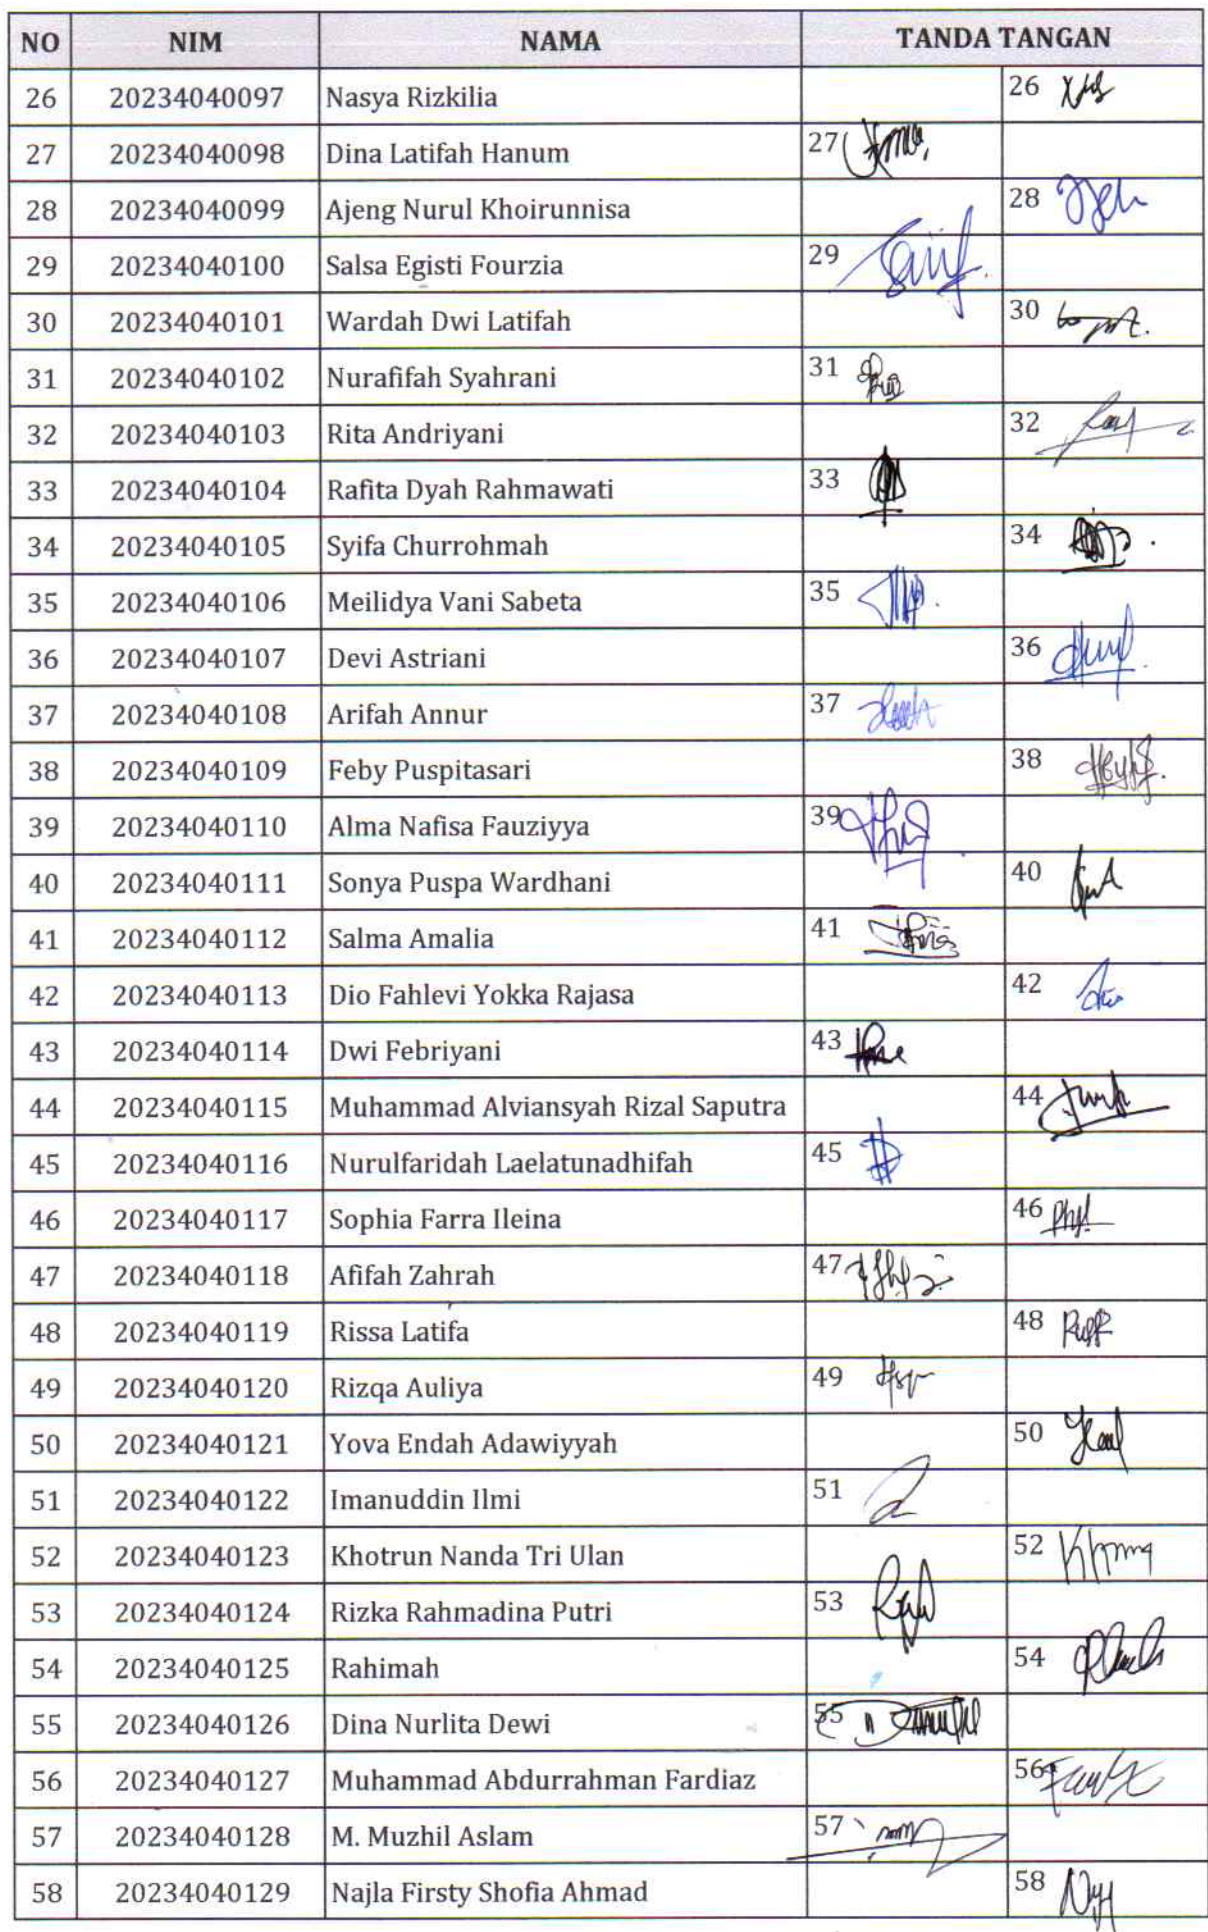 NO NIM NAMA TANDA TANGAN
26 20234040097 Nasya Rizkilia 26
27 20234040098 Dina Latifah Hanum 27
28 20234040099 Ajeng Nurul Khoirunnisa 28
29 20234040100 Salsa Egisti Fourzia 29
30 20234040101 Wardah Dwi Latifah 30
31 20234040102 Nurafifah Syahrani 31
32 20234040103 Rita Andriyani 32
33 20234040104 Rafita Dyah Rahmawati 33
34 20234040105 Syifa Churrohmah 34
35 20234040106 Meilidya Vani Sabeta 35
36 20234040107 Devi Astriani 36
37 20234040108 Arifah Annur 37
38 20234040109 Feby Puspitasari 38
39 20234040110 Alma Nafisa Fauziyya 39
40 20234040111 Sonya Puspa Wardhani 40
41 20234040112 Salma Amalia 41
42 20234040113 Dio Fahlevi Yokka Rajasa 42
43 20234040114 Dwi Febriyani 43
44 20234040115 Muhammad Alviansyah Rizal Saputra 44
45 20234040116 Nurulfaridah Laelatunadhifah 45
46 20234040117 Sophia Farra Ileina 46
47 20234040118 Afifah Zahrah 47
48 20234040119 Rissa Latifa 48
49 20234040120 Rizqa Auliya 49
50 20234040121 Yova Endah Adawiyyah 50
51 20234040122 Imanuddin Ilmi 51
52 20234040123 Khotrun Nanda Tri Ulan 52
53 20234040124 Rizka Rahmadina Putri 53
54 20234040125 Rahimah 54
55 20234040126 Dina Nurlita Dewi 55
56 20234040127 Muhammad Abdurrahman Fardiaz 56
57 20234040128 M. Muzhil Aslam 57
58 20234040129 Najla Firsty Shofia Ahmad 58